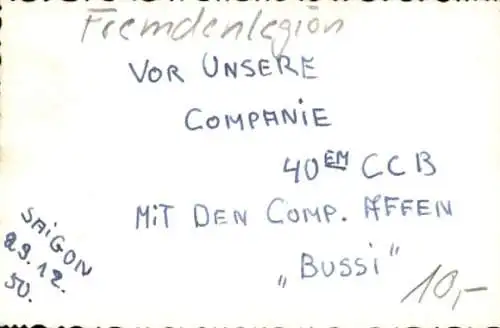 Fremdenlegion
VOR UNSERE
COMPANIE
40EM CCB
MIT DEN COMP. AFFEN
„BUSSI"
SAIGON
29.12.
50.
10,-